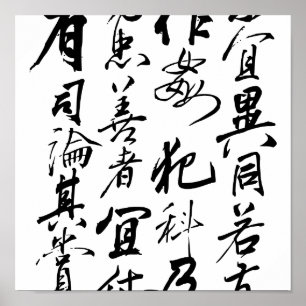 宜異同若有
作姦犯科及
忠善者宜付
有司論其刑賞